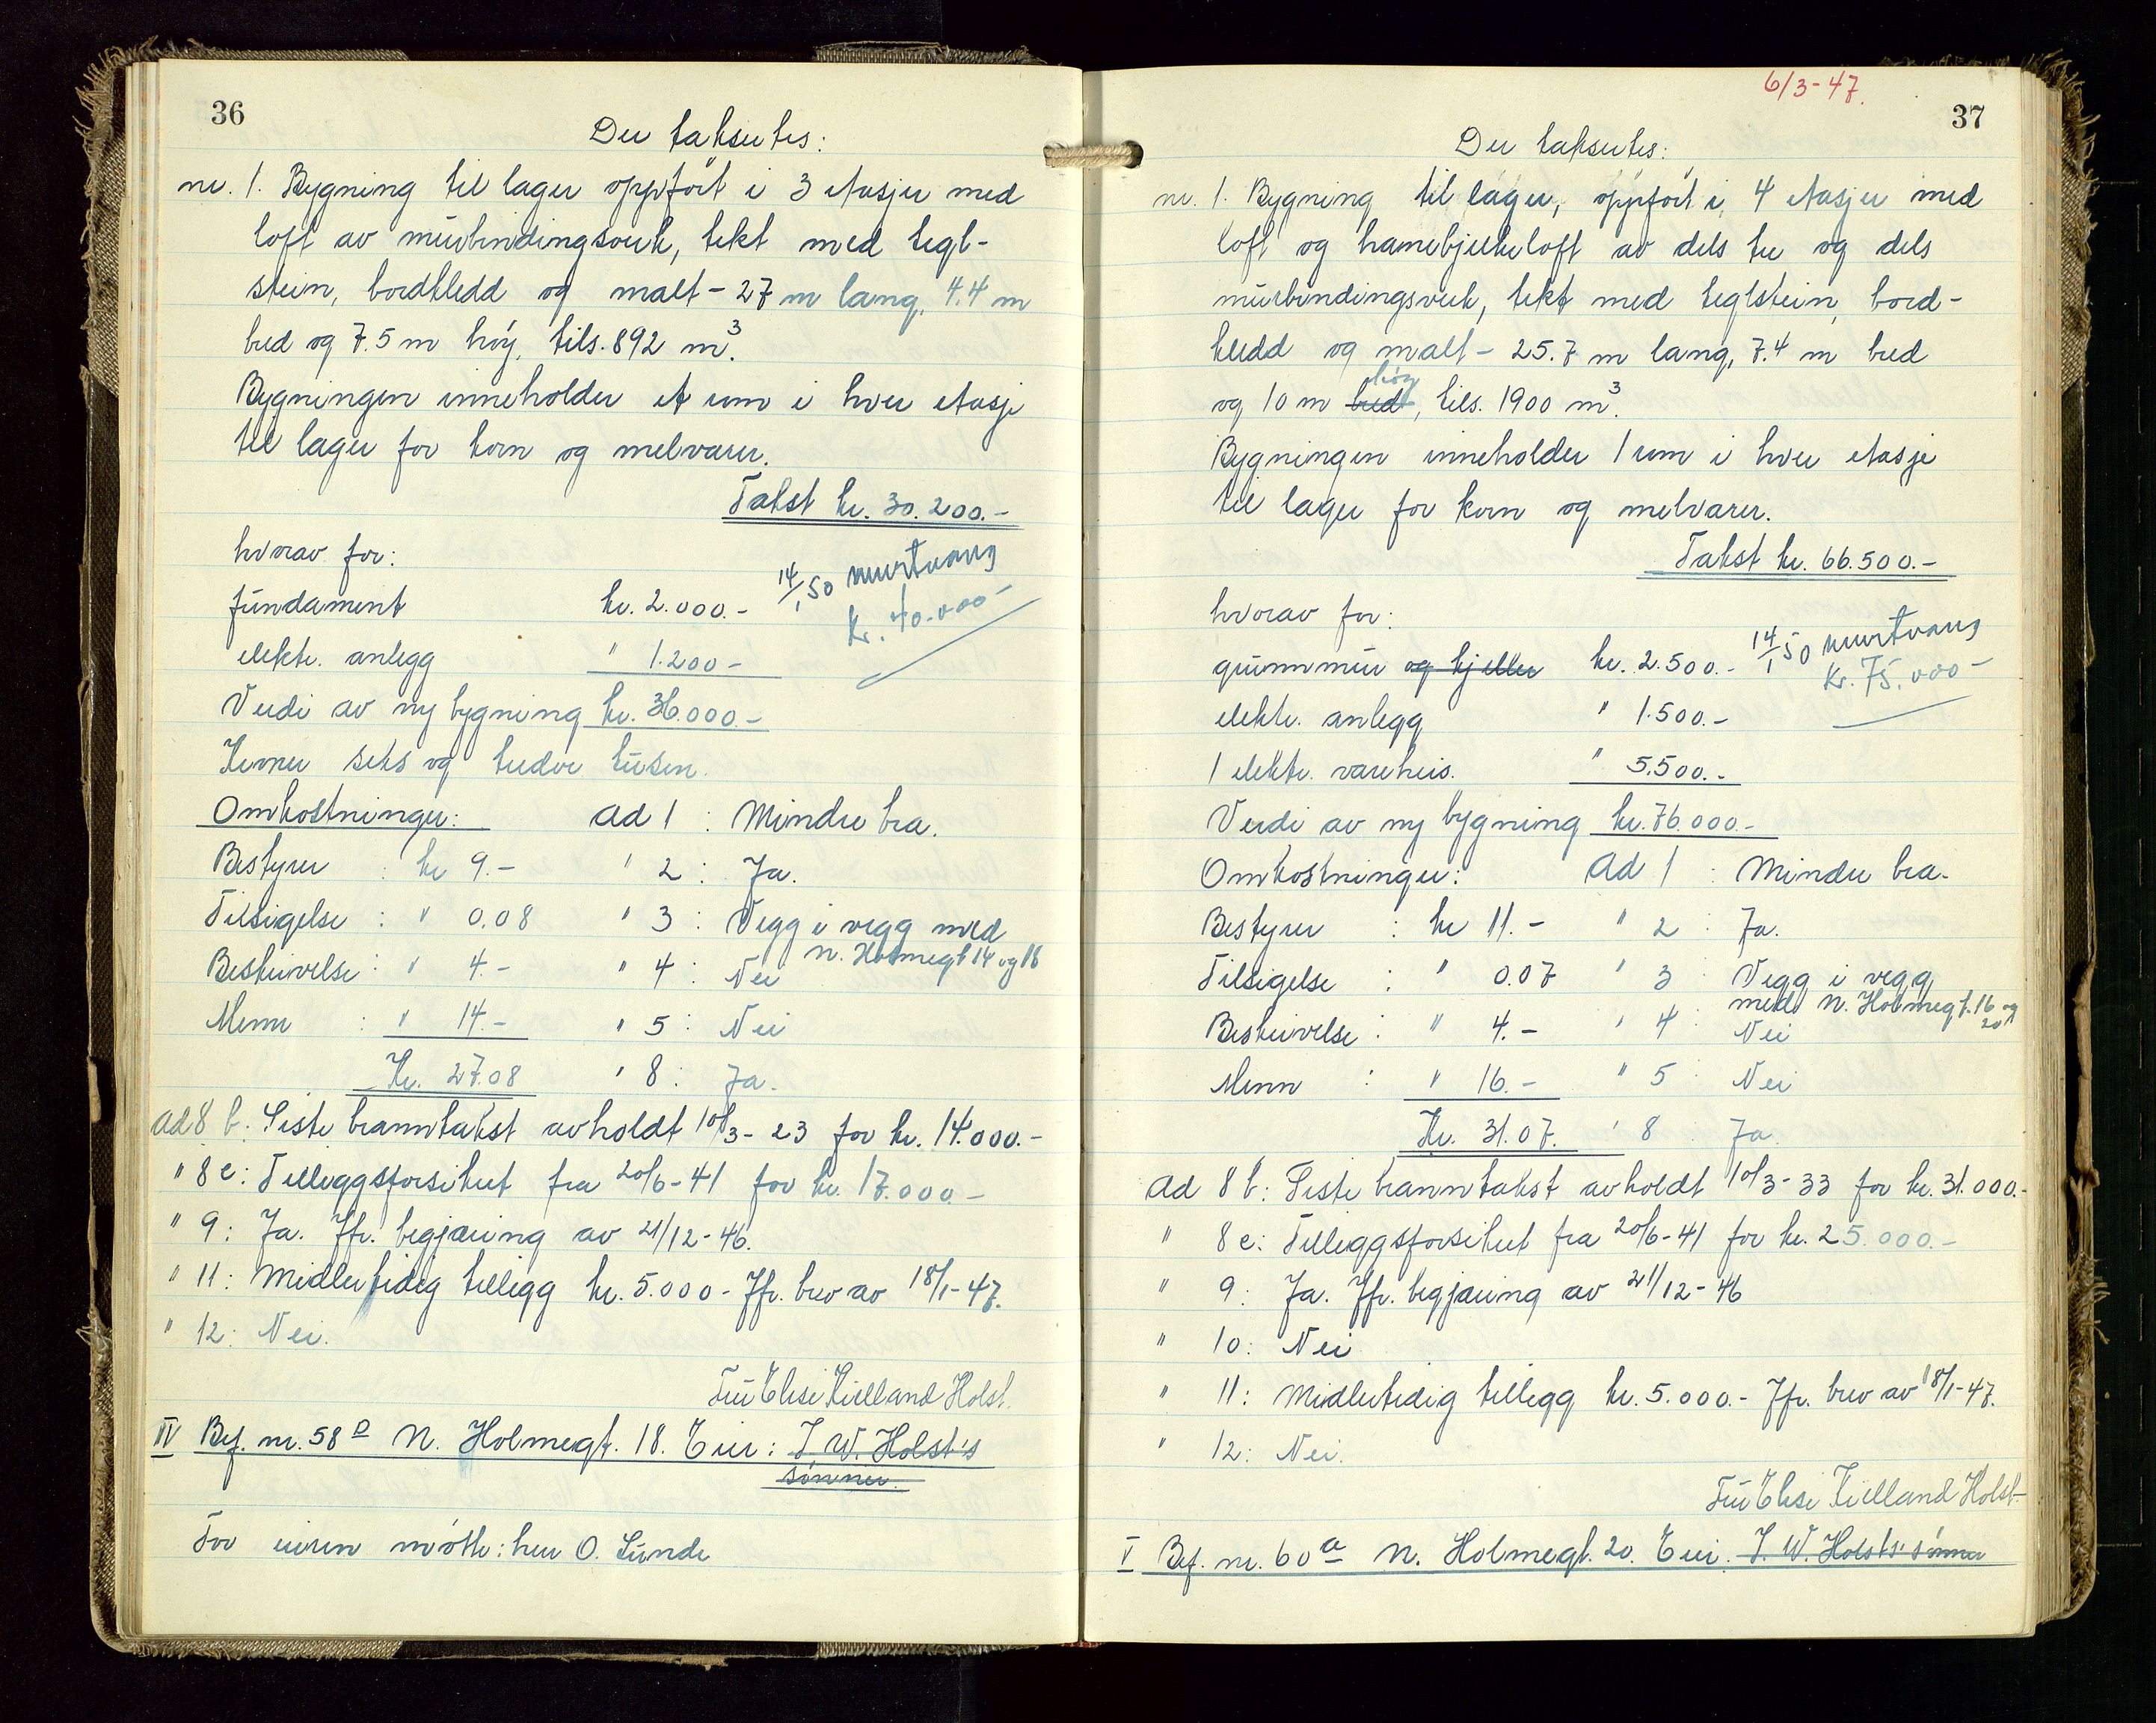 36
Der takseres:
nr. 1. Bygning til lager oppført i 3 etasjer med
loft av murbindingsverk, tekt med tegl-
stein, bordkledd og malt - 27 m lang, 4.4 m
bred og 7.5 m høy, tils. 892 m³.
Bygningen inneholder et rum i hver etasje
til lager for korn og melvarer.
Takst kr. 30.200.-
hvorav for:
fundament kr. 2.000.-
14/1 50 murtvang
kr. 40.000-
elektr. anlegg " 1.200-
Verdi av ny bygning kr. 36.000.-
Kroner seks og tredve tusen.
Omkostninger: ad 1 : Mindre bra.
Bestyrer : kr 9.- " 2 : Ja.
Tilsigelse : " 0.08 " 3 : Vegg i vegg med
N. Holmegt 14 og 18
Beskrivelse : " 4.- " 4 : Nei
Menn : " 14.- " 5 : Nei
Kr. 27.08 " 8 : Ja.
ad 8 b. Siste branntakst avholdt 10/3-23 for kr. 14.000.-
" 8 c: Tilleggsforsikret fra 20/6-41 for kr. 17.000-
" 9: Ja. Jfr. begjæring av 21/12-46.
" 11: Midlertidig tillegg kr. 5.000- Jfr. brev av 18/1-47.
" 12: Nei.
Fru Elise Kielland Holst.
IV Bef. nr. 58 D N. Holmegt. 18. Eier: T. W. Holst's
sønner.
For eieren møtte: herr O. Lunde
6/3-47.
37
Der takseres:
nr. 1. Bygning til lager, oppført i 4 etasjer med
loft og hanebjelkeloft av dels tre og dels
murbindingsverk, tekt med teglstein, bord-
kledd og malt - 25.7 m lang, 7.4 m bred
høy
og 10 m bred, tils. 1900 m³.
Bygningen inneholder 1 rum i hver etasje
til lager for korn og melvarer.
Takst kr. 66.500.-
hvorav for:
grunnmur og kjeller kr. 2.500.-
14/1 50 murtvang
kr. 75.000-
elektr. anlegg " 1.500.-
1 elektr. vareheis. " 5.500.-
Verdi av ny bygning kr. 76.000.-
Omkostninger: ad 1 : Mindre bra.
Bestyrer : kr 11.- " 2 : Ja.
Tilsigelse : " 0.07 " 3 : Vegg i vegg
med N. Holmegt. 16 og
20
Beskrivelse : " 4.- " 4 : Nei
Menn : " 16.- " 5 : Nei
Kr. 31.07. " 8 Ja
ad 8 b: Siste branntakst avholdt 10/3-33 for kr. 31.000.-
" 8 c: Tilleggsforsikret fra 20/6-41 for kr. 25.000.-
" 9: Ja. Jfr. begjæring av 21/12-46
" 10: Nei
" 11: Midlertidig tillegg kr. 5.000.- Jfr. brev av 18/1-47.
" 12: Nei.
Fru Elise Kielland Holst
V Bef. nr. 60 a N. Holmegt. 20. Eier. T. W. Holsts' sønner